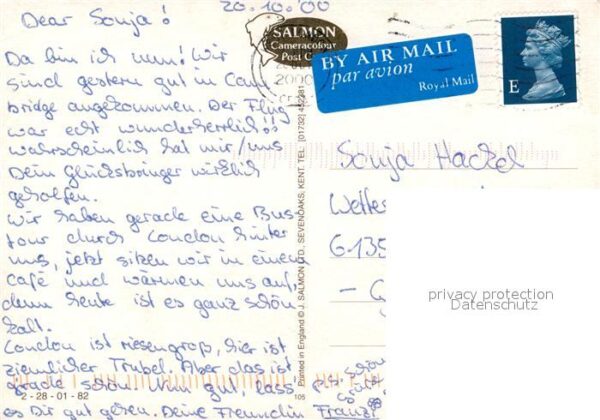 20.10.'00
Dear Sonja!
Da bin ich nun! Wir
sind gestern gut in Cam
bridge angekommen. Der Flug
war echt wunderherrlich!!
wahrscheinlich hat mir/uns
Dein Glücksbringer wirklich
geholfen.
Wir haben gerade eine Bus
tour durch London hinter
uns, jetzt sitzen wir in einem
Café und wärmen uns auf,
denn heute ist es ganz schön
kalt.
London ist riesengroß, hier ist
ziemlicher Trubel. Aber das ist
gerade schön. Nun gut, lass
es Dir gut gehen. Deine Freundin Franzi
2-28-01-82
SALMON
Cameracolour
Post C
2000
Printed in England © J. SALMON LTD., SEVENOAKS, KENT. TEL: (01732) 452381
105
BY AIR MAIL
par avion
Royal Mail
E
Sonja Hackel
G-135
privacy protection
Datenschutz